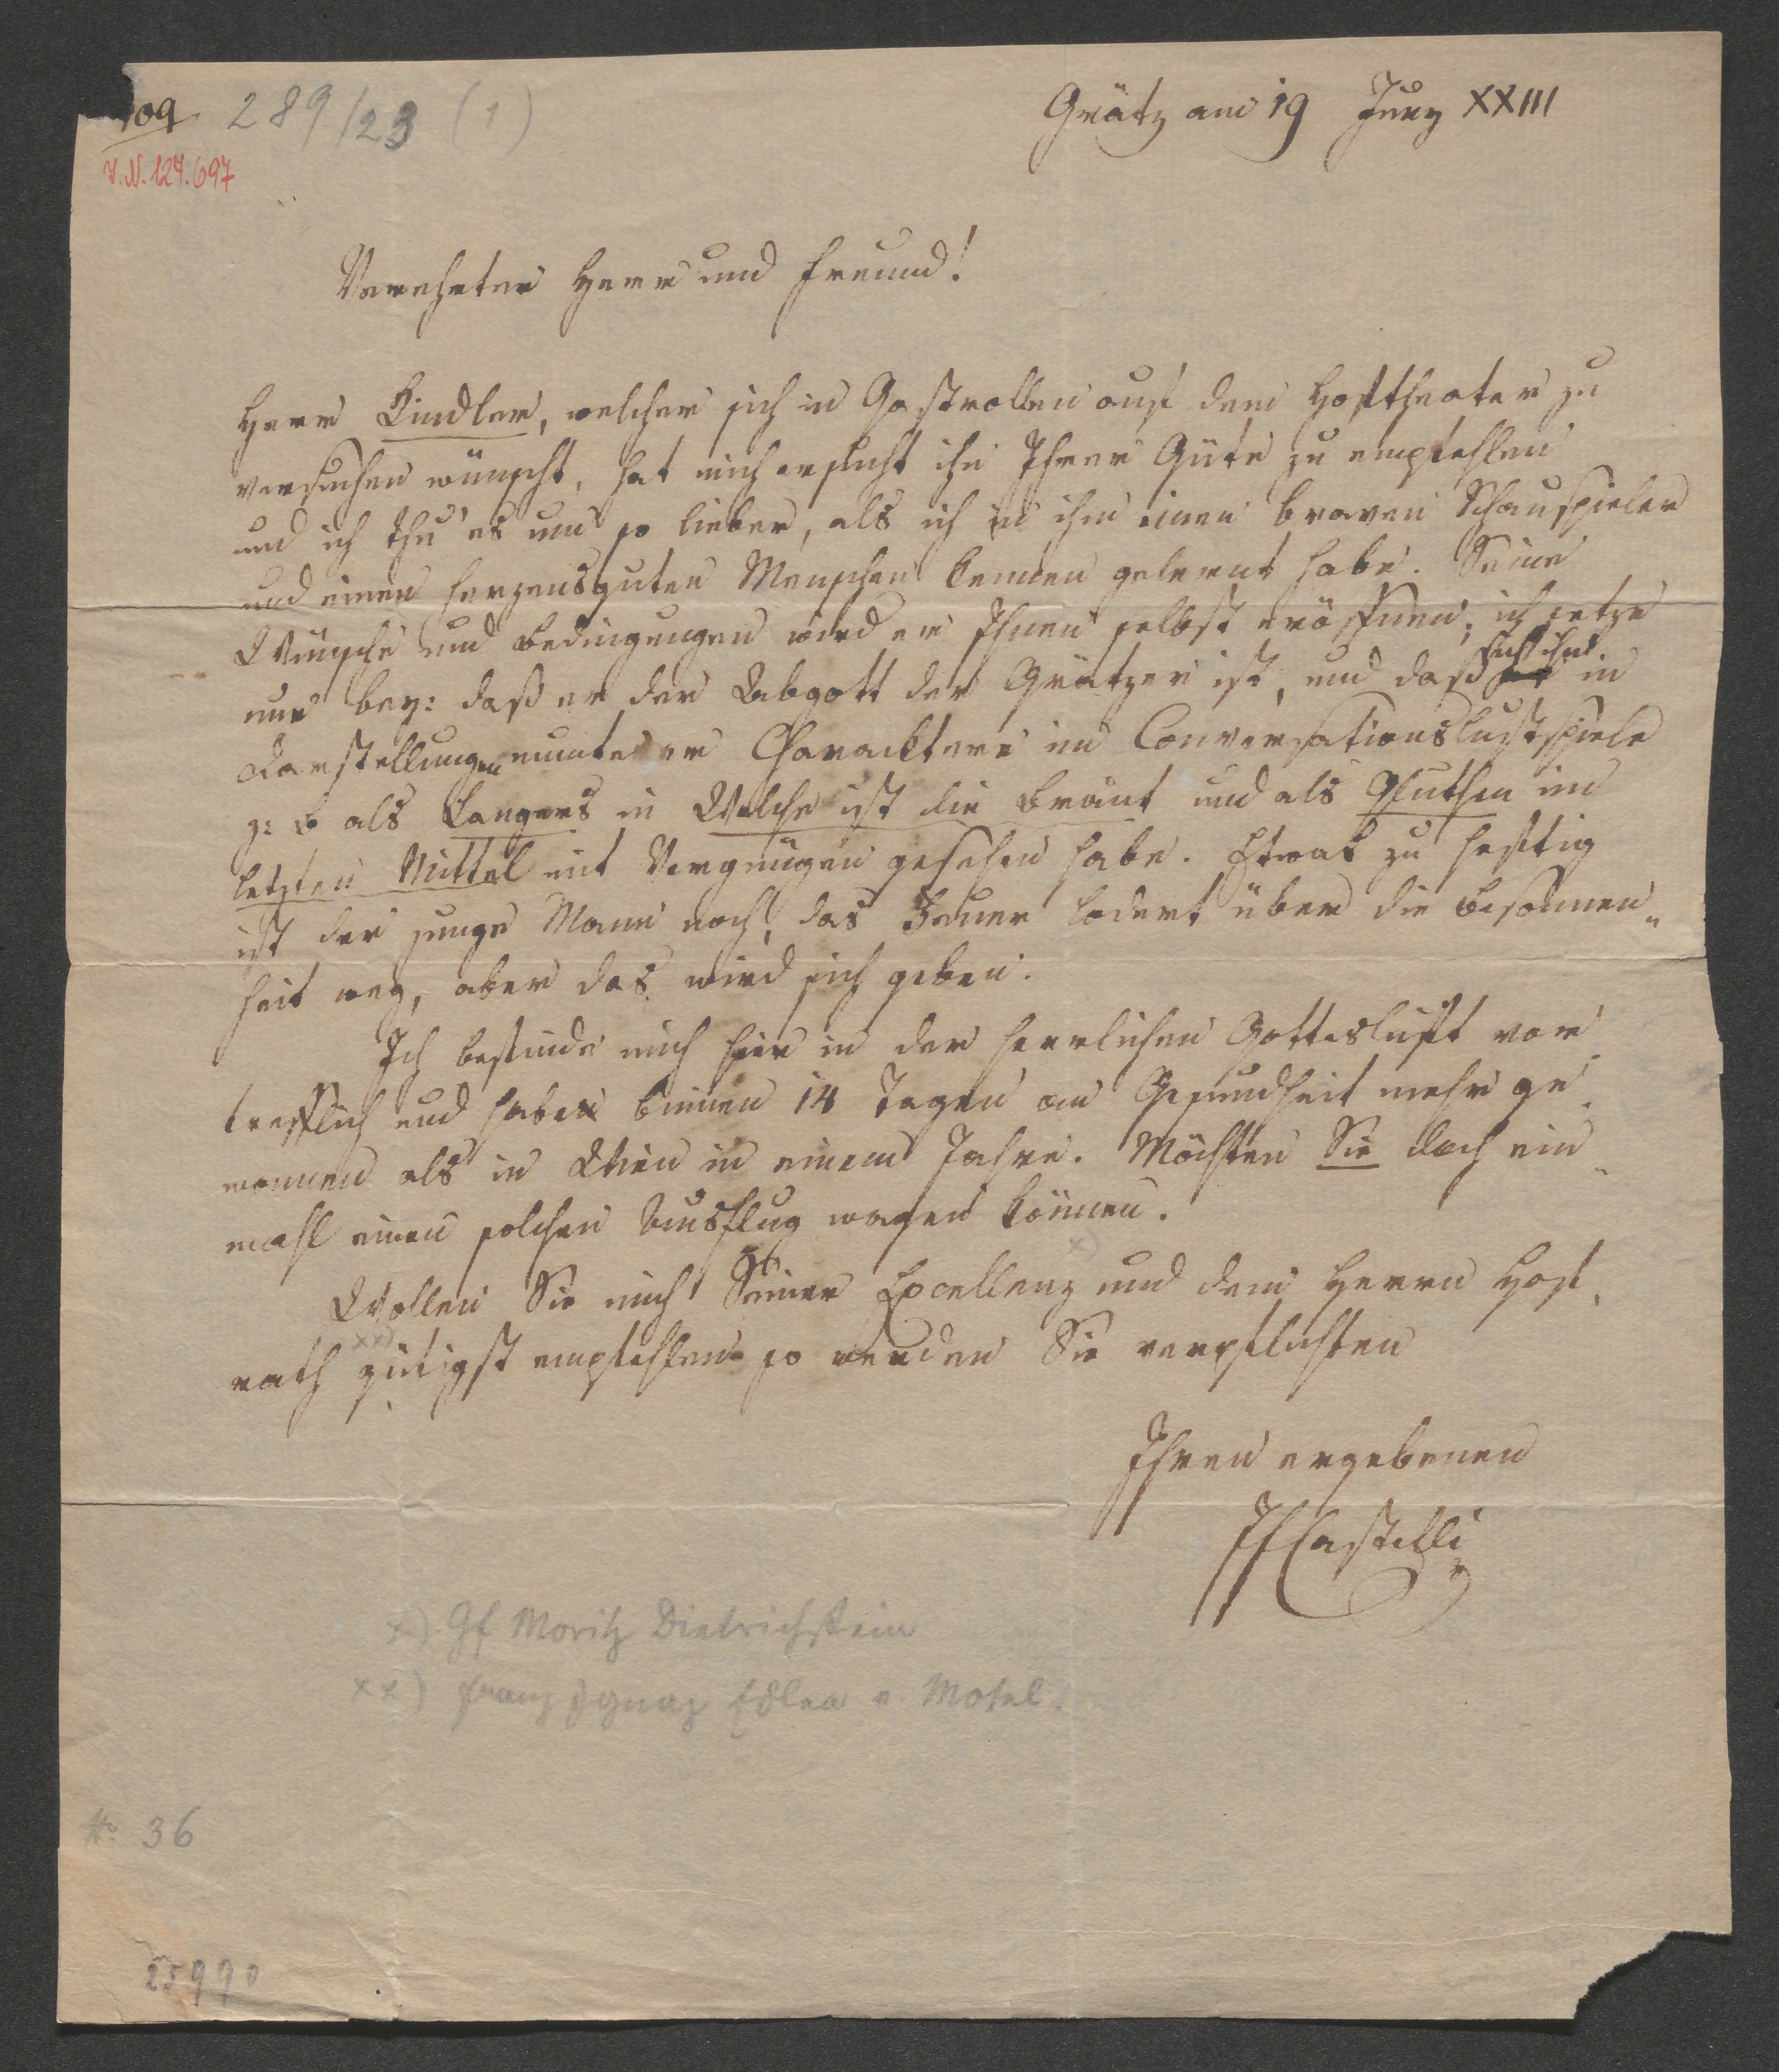 109
289/23 (1)
I.N. 127.697
Grätz am 19 Juny XXIII
Verehrter Herr und Freund!
Herr Kindler, welcher sich in Gastrollen auf dem Hoftheater zu
versuchen wünscht, hat mich ersucht ihn Ihrer Güte zu empfehlen
und ich thu' es um so lieber, als ich in ihm einen braven Schauspieler
und einen herzensguten Menschen kennen gelernt habe. Seine
Wünsche und Bedingungen wird er Ihnen selbst eröffnen; ich setze
nur bey: daß er der Abgott der Grätzer ist, und daß ich ihn in
Darstellungen munterer Characktere im Conversationslustspiele
z: B als Langers in Welche ist die Braut und als Gluthen im
letzten Mittel mit Vergnügen gesehen habe. Etwas zu heftig
ist der junge Mann noch, das Feuer lodert über die Besonnen„
heit weg, aber das wird sich geben.
Ich befinde mich hier in der herrlichen Gottesluft vor
trefflich und habe binnen 14 Tagen an Gesundheit mehr ge
wonnen als in Wien in einem Jahre. Möchten Sie doch ein„
mahl einen solchen Ausflug wagen können.
Wollen Sie mich Seiner Excellenz x) und dem Herrn Hof„
rath xx) gütigst empfehlen so werden Sie verpflichten
Ihren ergebenen
IFCastelli
x) Gf Moritz Dietrichstein
xx) Franz Ignaz Edler v. Mosel.
No 36
25990